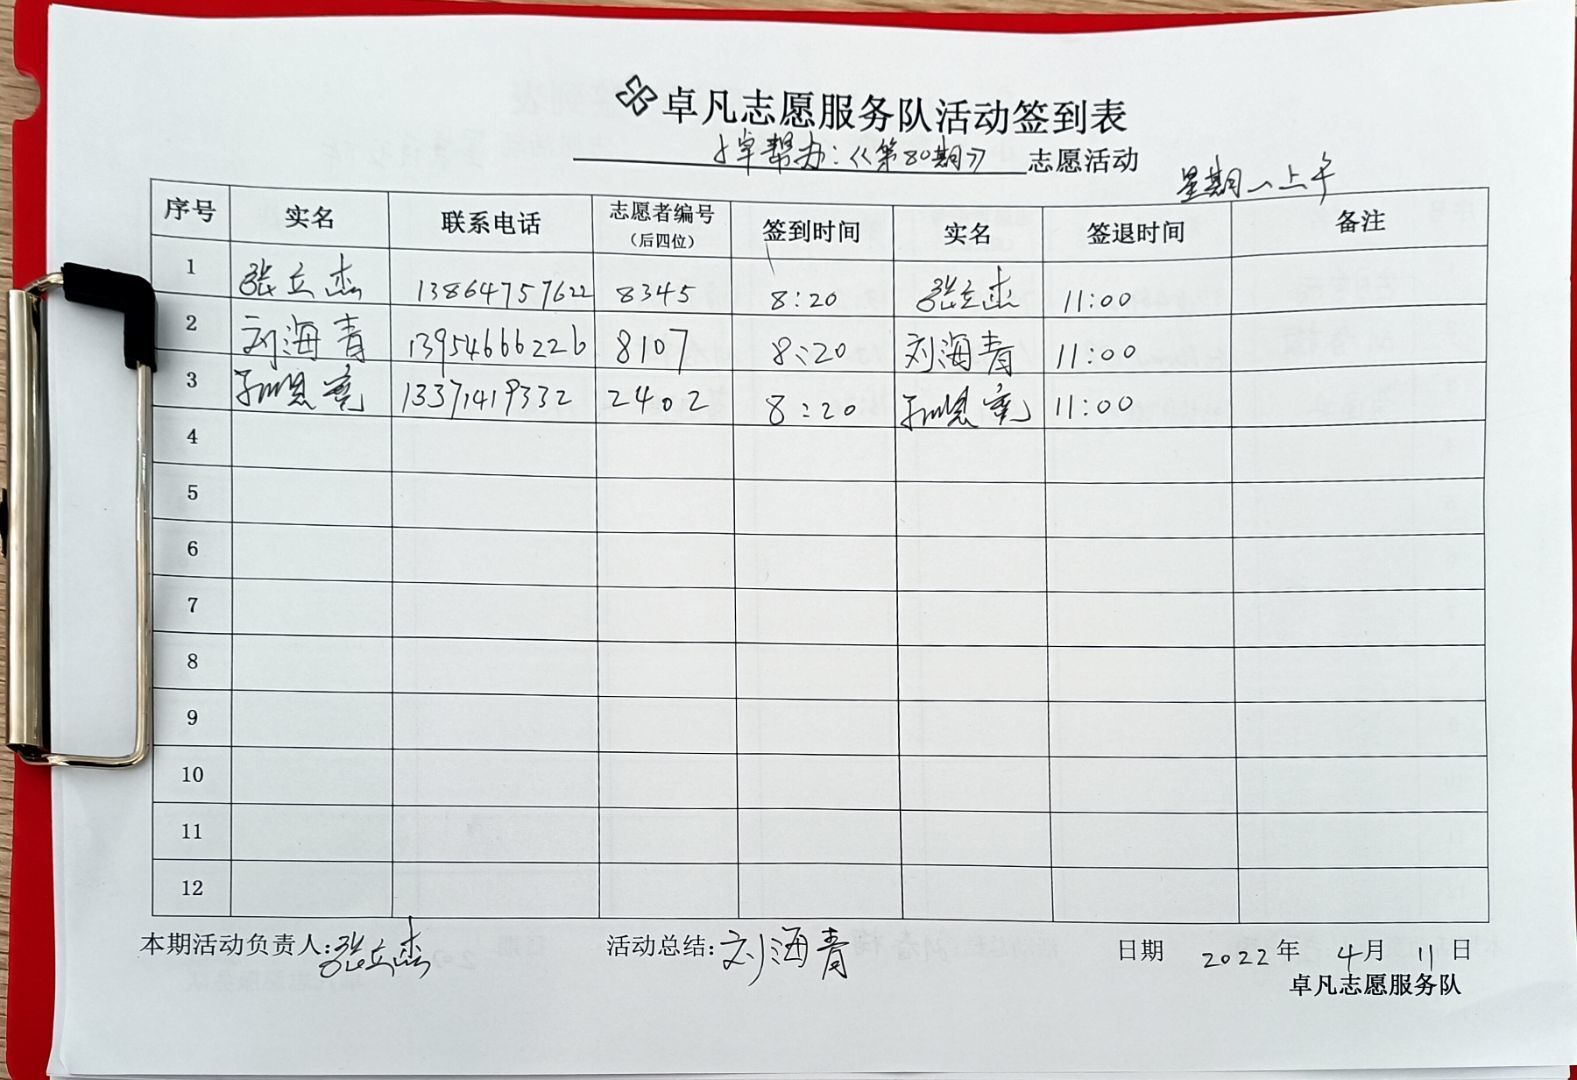 卓凡志愿服务队活动签到表
小卓帮办：《第80期》 志愿活动
星期一上午
序号 实名 联系电话 志愿者编号（后四位） 签到时间 实名 签退时间 备注
1 张立杰 13864757622 8345 8:20 张立杰 11:00
2 刘海青 13954666226 8107 8:20 刘海青 11:00
3 13371419332 2402 8:20 11:00
4
5
6
7
8
9
10
11
12
本期活动负责人:张立杰 活动总结:刘海青 日期 2022年 4月 11日
卓凡志愿服务队